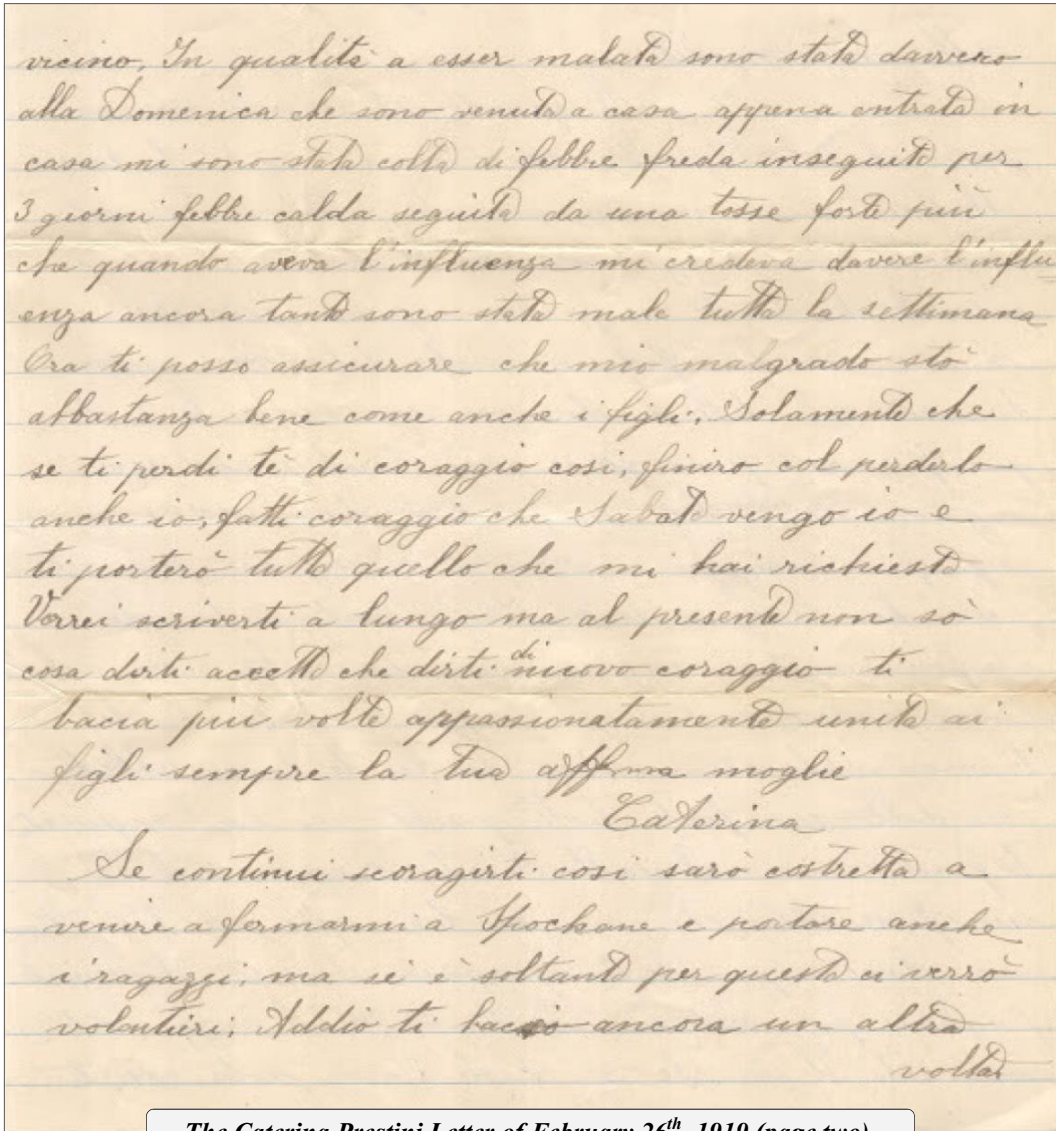 vicino, In qualità a esser malata sono stata davvero
alla Domenica che sono venuta a casa appena entrata in
casa mi sono stata colta di febbre freda inseguito per
3 giorni febbre calda seguita da una tosse forte più
che quando aveva l'influenza mi credeva davere l'influ
enza ancora tanto sono stata male tutta la settimana
Ora ti posso assicurare che mio malgrado stò
abbastanza bene come anche i figli, Solamente che
se ti perdi tè di coraggio cosi, finiro col perderlo
anche io, fatti coraggio che Sabato vengo io e
ti porterò tutto quello che mi hai richiesto
Vorrei scriverti a lungo ma al presente non sò
cosa dirti accetto che dirti di nuovo coraggio ti
bacia più volte appassionatamente unita ai
figli sempre la tua affma moglie
Caterina
Se continui scoragirti cosi sarò costretta a
venire a fermarmi a Spockane e portare anche
i ragazzi, ma se è soltanto per questo ci verrò
volentieri, Addio ti bacio ancora un altra
volta
The Caterina Prestini Letter of February 26th, 1919 (page two)